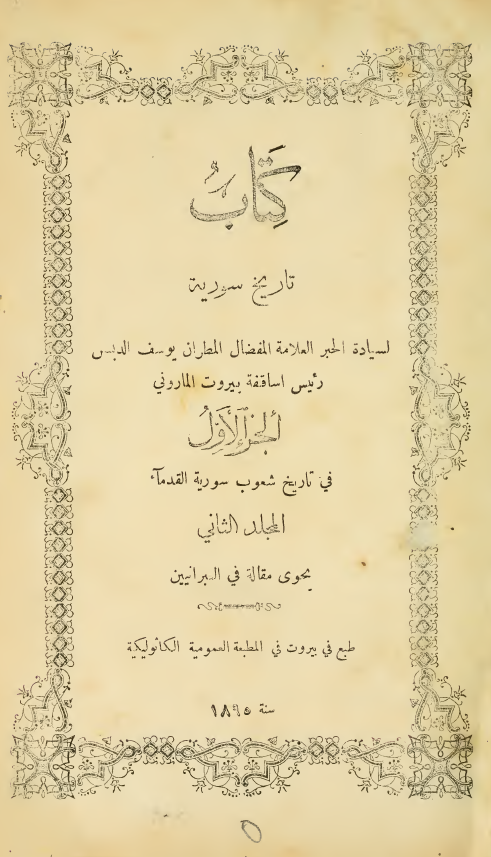 كِتَابُ
تاريخ سورية
لسيادة الحبر العلامة المفضال المطران يوسف الدبس
رئيس اساقفة بيروت الماروني
أَلجزءُ الأَوَّلُ
في تاريخ شعوب سورية القدمآء
المجلد الثاني
يحوى مقالة في العبرانيين
طبع في بيروت في المطبعة العمومية الكاثوليكية
سنة ١٨٩٥